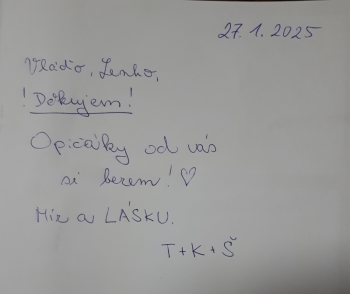 27.1.2025
Vláďo, Lenko,
! Děkujem !
Opičáky od vás
si berem! ♡
Mír a LÁSKU.
T+K+Š